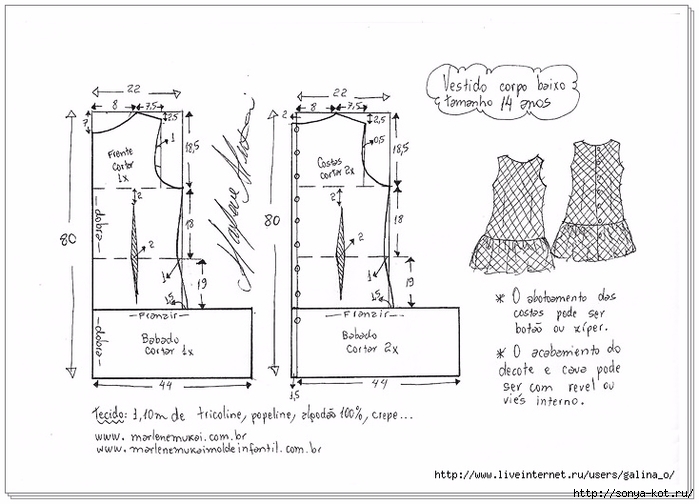 Vestido corpo baixo
tamanho 14 anos
22
8
7,5
2,5
7
1
18,5
Frente
cortar
1x
2
dobra
18
2
80
1
19
1,5
Franzir
dobra
Babado
cortar 1x
44
22
2
8
7,5
2,5
0,5
18,5
Costas
cortar 2x
2
18
2
80
1
19
1,5
Franzir
Babado
cortar 2x
1,5
44
* O abotoamento das
costas pode ser
botão ou zíper.
* O acabamento do
decote e cava pode
ser com revel ou
viés interno.
Tecido: 1,10m de tricoline, popeline, algodão 100%, crepe...
www.marlenemukai.com.br
www.marlenemukaimoldeinfantil.com.br
http://www.liveinternet.ru/users/galina_o/
http://sonya-kot.ru/